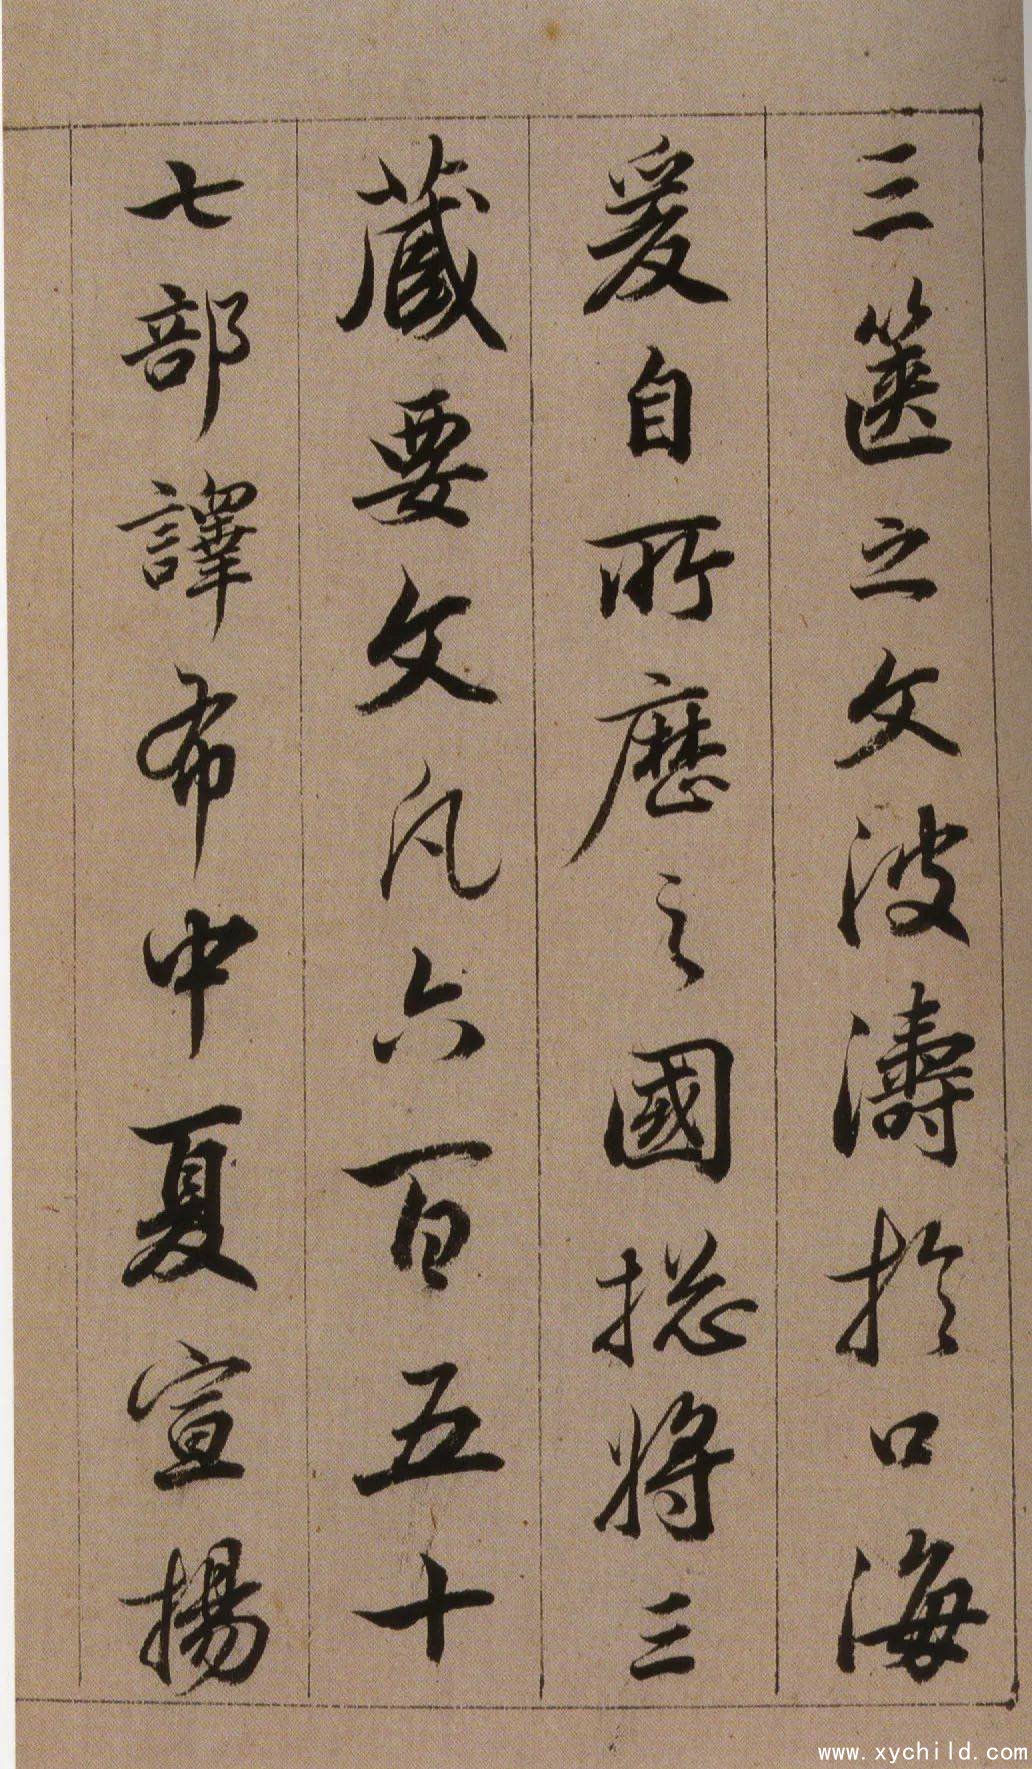 三篋之文波濤於口海
爰自所歷之國揔將三
藏要文凡六百五十
七部譯布中夏宣揚
www.xychild.com